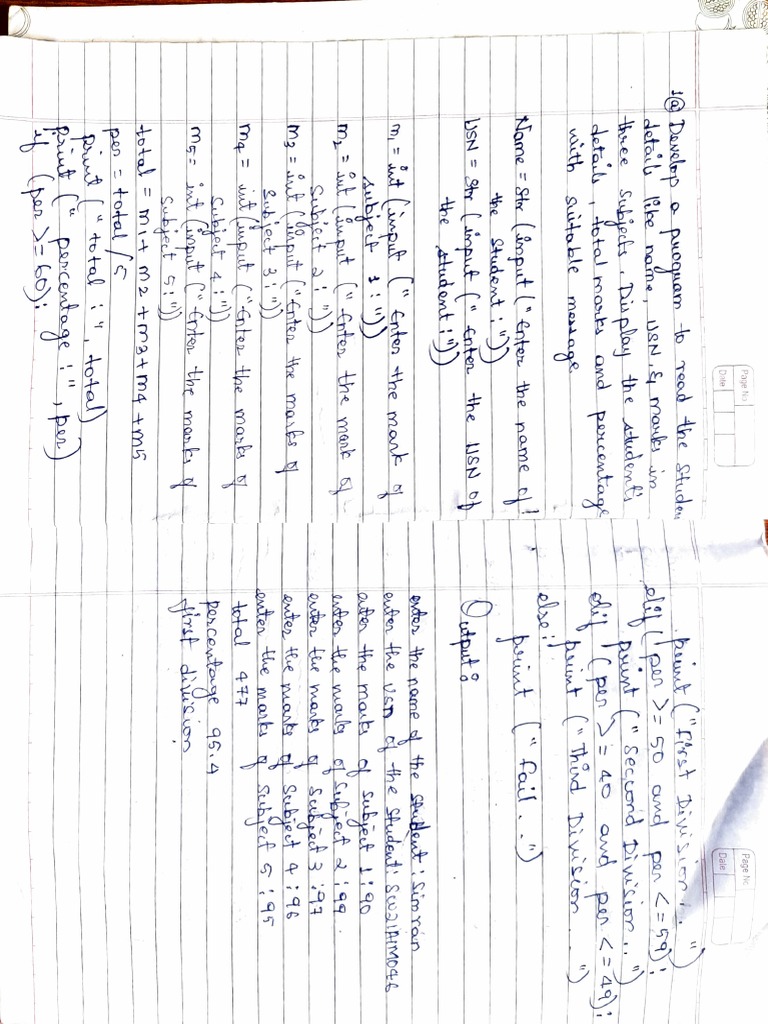 Page No
Date
1a Develop a program to read the studen
details like name, USN, & marks in
three subjects. Display the student's
details, total marks and percentage
with suitable message
Name = str (input ("Enter the name of
the student : "))
USN = str (input ("Enter the USN of
the student : "))
m1 = int (input ("Enter the mark of
subject 1 : "))
m2 = int (input ("Enter the mark of
subject 2 : "))
m3 = int (input ("Enter the marks of
subject 3 : "))
m4 = int (input ("Enter the marks of
subject 4 : "))
m5 = int (input ("Enter the marks of
subject 5 : "))
total = m1 + m2 + m3 + m4 + m5
per = total / 5
print ("total : ", total)
print (" percentage : ", per)
if (per >= 60):
Page No.
Date
print ("First Division . . ")
elif (per >= 50 and per <= 59):
print ("Second Division . . ")
elif (per >= 40 and per <= 49):
print ("Third Division . . ")
else:
print (" fail . . ")
Output :
enter the name of the student : Simran
enter the USN of the student :
enter the marks of subject 1 : 90
enter the marks of subject 2 : 99
enter the marks of subject 3 : 97
enter the marks of subject 4 : 96
enter the marks of subject 5 : 95
total 477
percentage 95.4
first division